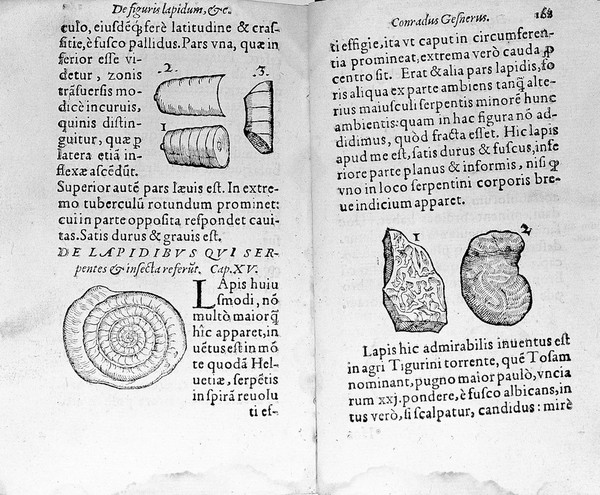 De figuris lapidum, &c.
culo, eiusdéq; ferè latitudine & cras-
sitie, è fusco pallidus. Pars vna, quæ in
ferior esse vi-
detur, zonis
trãsuersis mo-
dicè incuruis,
quinis distin-
guitur, quæ ꝑ
latera etiã in-
flexæ ascẽdũt.
.2.
.3.
1
Superior autẽ pars læuis est. In extre-
mo tuberculũ rotundum prominet:
cui in parte opposita respondet caui-
tas. Satis durus & grauis est.
DE LAPIDIBVS QVI SER-
pentes & insecta referũt. Cap. XV.
LApis huiu
smodi, nõ
multò maior ꝗ̃
hîc apparet, in
uẽtus est in mõ
te quodã Hel-
uetiæ, serpẽtis
in spirã reuolu
ti ef-
Conradus Gesnerus. 168
ti effigie, ita vt caput in circumferen-
tia promineat, extrema verò cauda ꝓ
centro sit. Erat & alia pars lapidis, fo
ris aliqua ex parte ambiens tanꝗ̃ alte-
rius maiusculi serpentis minorẽ hunc
ambientis: quam in hac figura nõ ad-
didimus, quòd fracta esset. Hic lapis
apud me est, satis durus & fuscus, infe
riore parte planus & informis, nisi ꝙ
vno in loco serpentini corporis bre-
ue indicium apparet.
1
2
Lapis hic admirabilis inuentus est
in agri Tigurini torrente, quẽ Tosam
nominant, pugno maior paulò, vncia
rum xxj. pondere, è fusco albicans, in
tus verò, si scalpatur, candidus: mirè